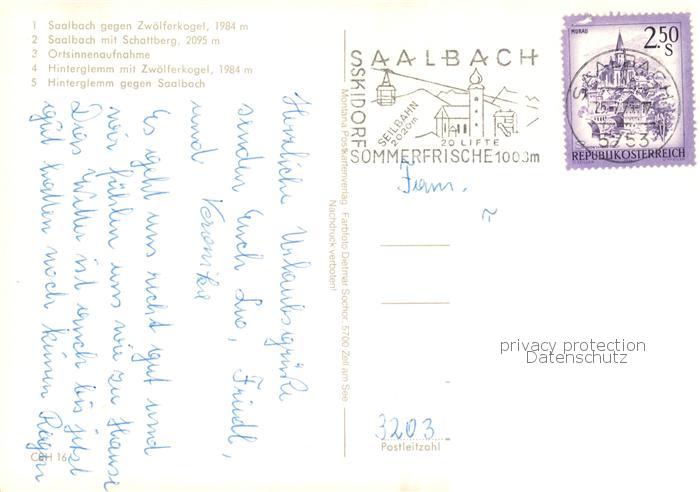 1 Saalbach gegen Zwölferkogel, 1984 m
2 Saalbach mit Schattberg, 2095 m
3 Ortsinnenaufnahme
4 Hinterglemm mit Zwölferkogel, 1984 m
5 Hinterglemm gegen Saalbach
Herzliche Urlaubsgrüße
senden Euch Luo, Friedl,
und Veronika
Es geht uns recht gut und
wir fühlen uns wie zu Hause
Das Wetter ist auch bis jetzt
gut hatten noch keinen Regen
CSH 16
Montana Postkartenverlag Farbfoto Dietmar Sochor, 5700 Zell am See
Nachdruck verboten!
SAALBACH
SKIDORF
SEILBAHN
2020m
20 LIFTE
SOMMERFRISCHE 1003m
MURAU
2.50
S
REPUBLIK ÖSTERREICH
SAALBACH
5753
Fam.
3203
Postleitzahl
privacy protection
Datenschutz